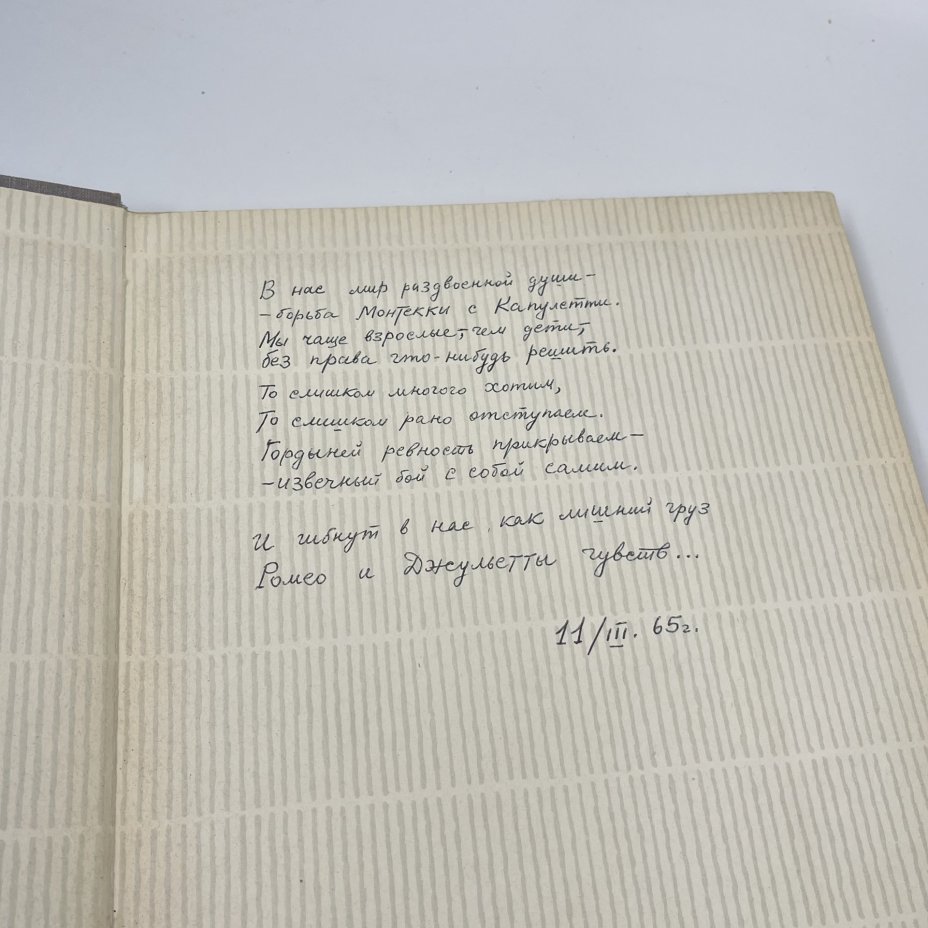 В нас мир раздвоенной души –
– борьба Монтекки с Капулетти.
Мы чаще взрослые, чем дети,
без права что-нибудь решить.
То слишком многого хотим,
То слишком рано отступаем.
Гордыней ревность прикрываем –
– извечный бой с собой самим.
И гибнут в нас, как лишний груз
Ромео и Джульетты чувств...
11/III. 65г.